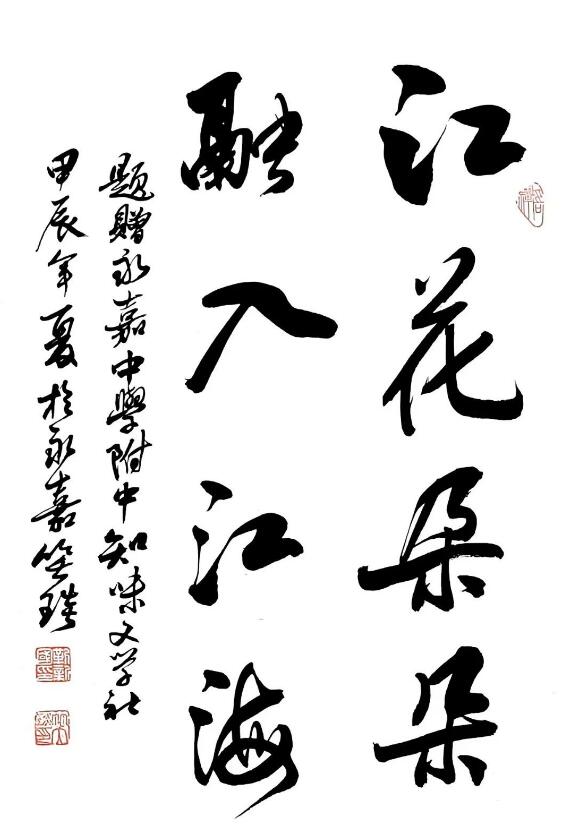 江花朵朵
融入江海
题赠永嘉中學附中知味文学社
甲辰年夏於永嘉